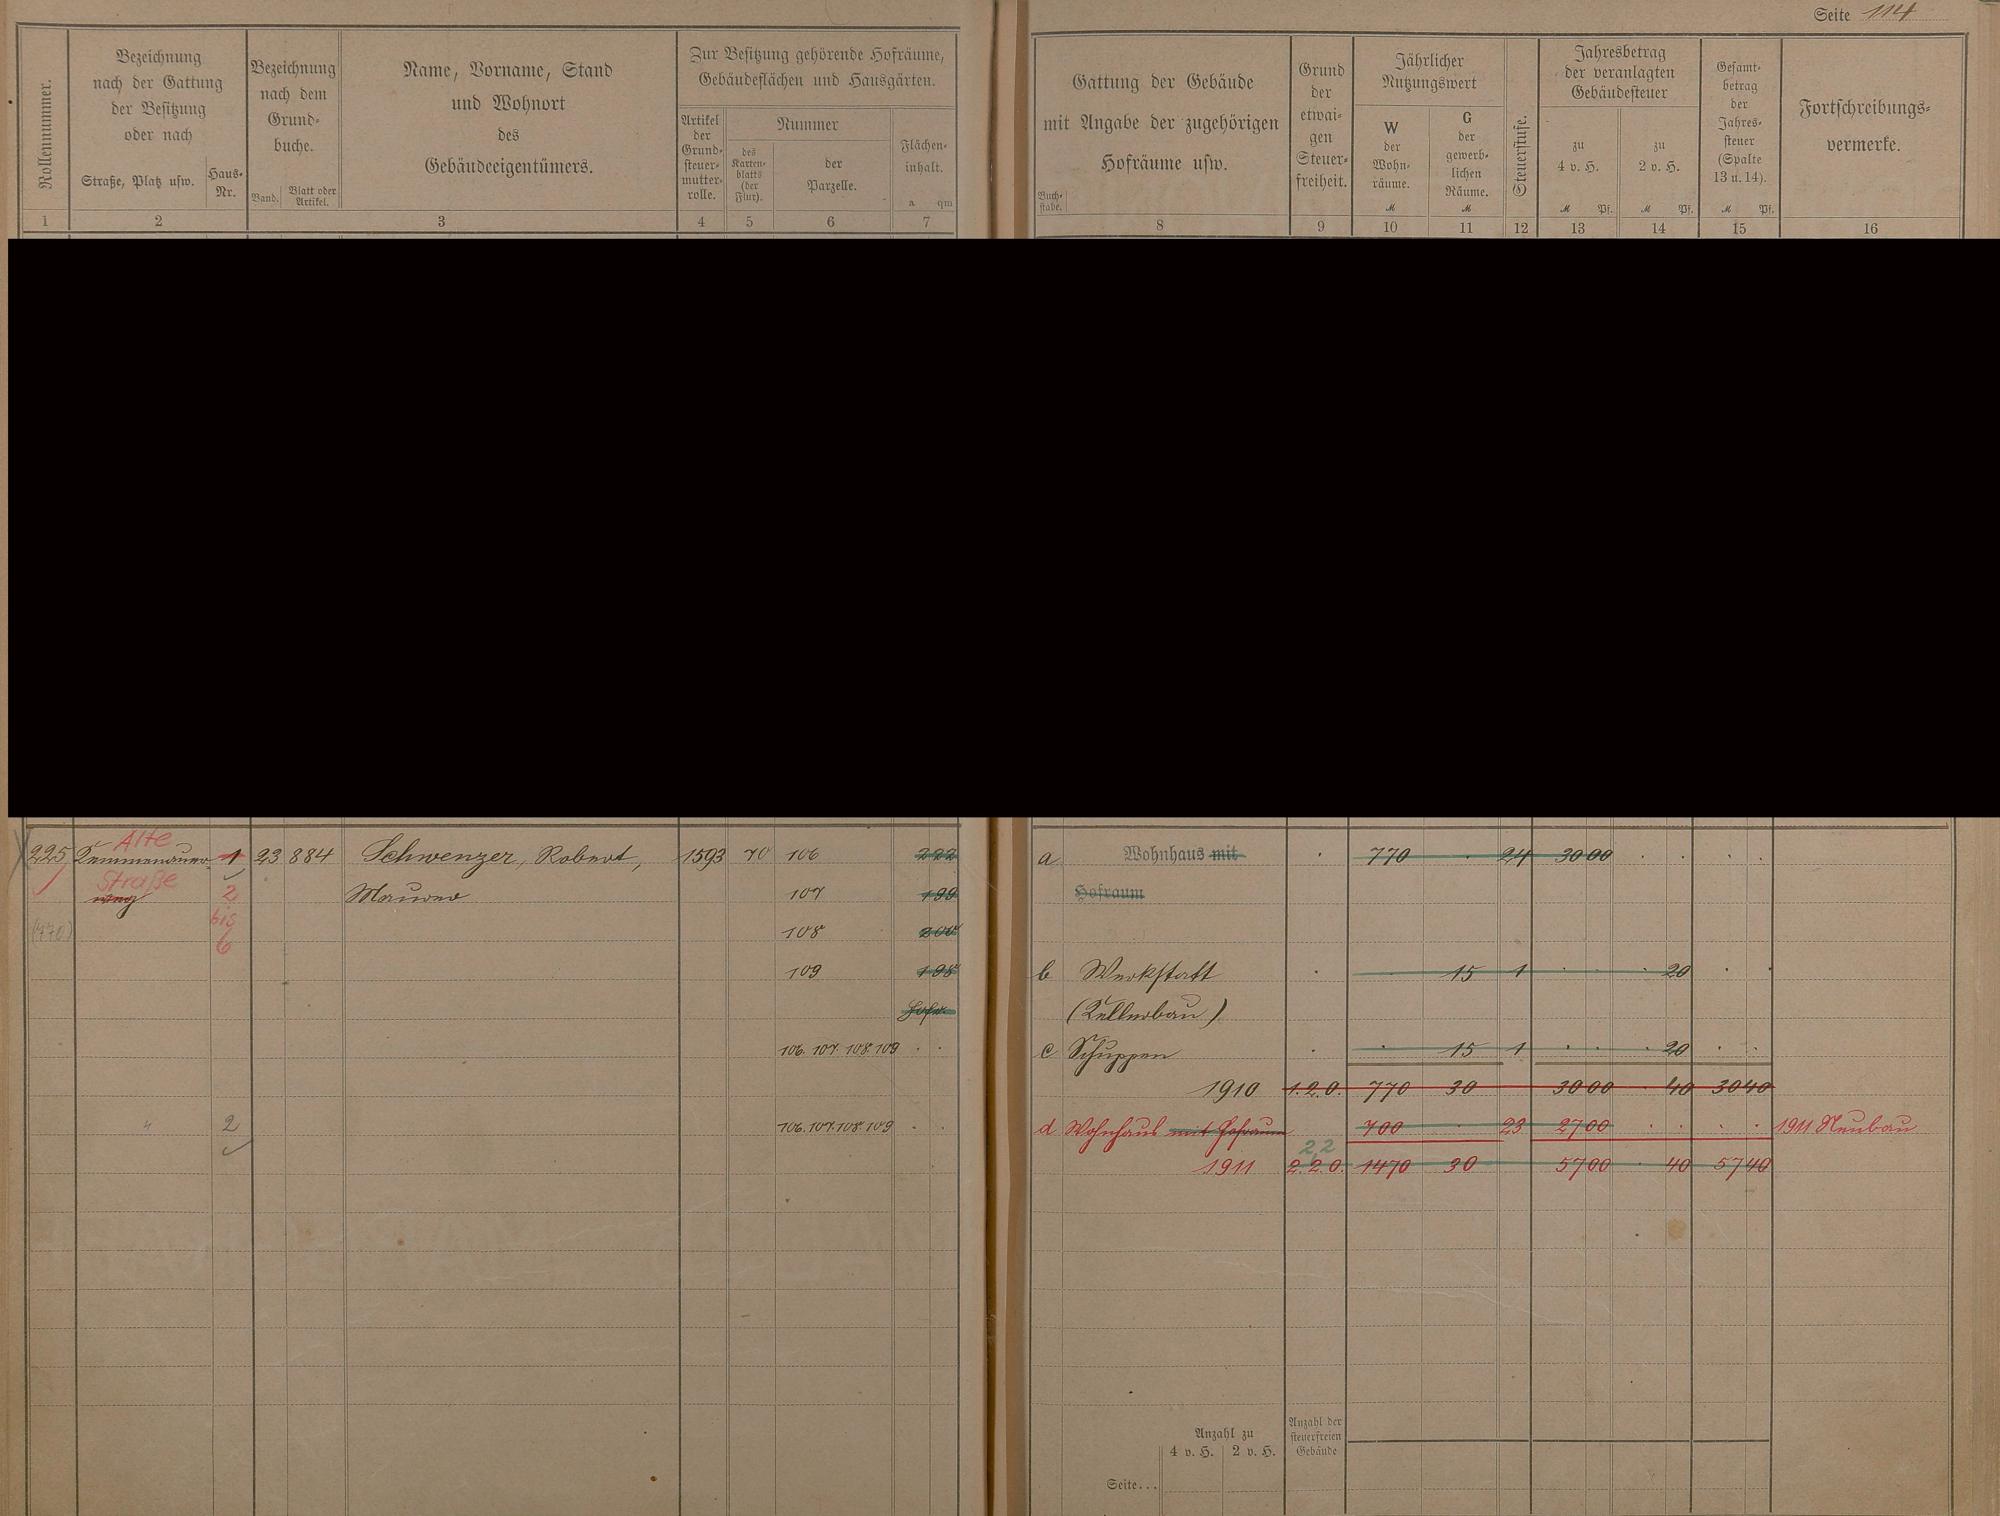 Seite 114
Rollennummer.
Bezeichnung
nach der Gattung
der Besitzung
oder nach
Straße, Platz usw.
Haus-
Nr.
Bezeichnung
nach dem
Grund-
buche.
Band.
Blatt oder
Artikel.
Name, Vorname, Stand
und Wohnort
des
Gebäudeeigentümers.
Zur Besitzung gehörende Hofräume,
Gebäudeflächen und Hausgärten.
Artikel
der
Grund-
steuer-
mutter-
rolle.
Nummer
des
Karten-
blatts
(der
Flur).
der
Parzelle.
Flächen-
inhalt.
a qm
1 2 3 4 5 6 7
Gattung der Gebäude
mit Angabe der zugehörigen
Hofräume usw.
Buch-
stabe.
Grund
der
etwai-
gen
Steuer-
freiheit.
Jährlicher
Nutzungswert
W
der
Wohn-
räume.
M
G
der
gewerb-
lichen
Räume.
M
Steuerstufe.
Jahresbetrag
der veranlagten
Gebäudesteuer
zu
4 v. H.
M Pf.
zu
2 v. H.
M Pf.
Gesamt-
betrag
der
Jahres-
steuer
(Spalte
13 u. 14).
M Pf.
Fortschreibungs-
vermerke.
8 9 10 11 12 13 14 15 16
Alte
225 Kemmenauer 1 23 884 Schwenzer, Robert, 1593 70 106 222
Straße
weg 2 Maurer 107 199
bis
(770) 6 108 200
109 198
Hofr.
106. 107. 108. 109
" 2 106. 107. 108. 109
a Wohnhaus mit 770 24 30 00
Hofraum
b Werkstatt 15 1 20
(Kellerbau)
c Schuppen 15 1 20
1910 1.2.0. 770 30 30 00 40 30 40
d Wohnhaus mit Hofraum 700 23 27 00 1911 Neubau
2,2
1911 2.2.0. 1470 30 57 00 40 57 40
Anzahl zu
4 v. H. 2 v. H.
Anzahl der
steuerfreien
Gebäude
Seite...